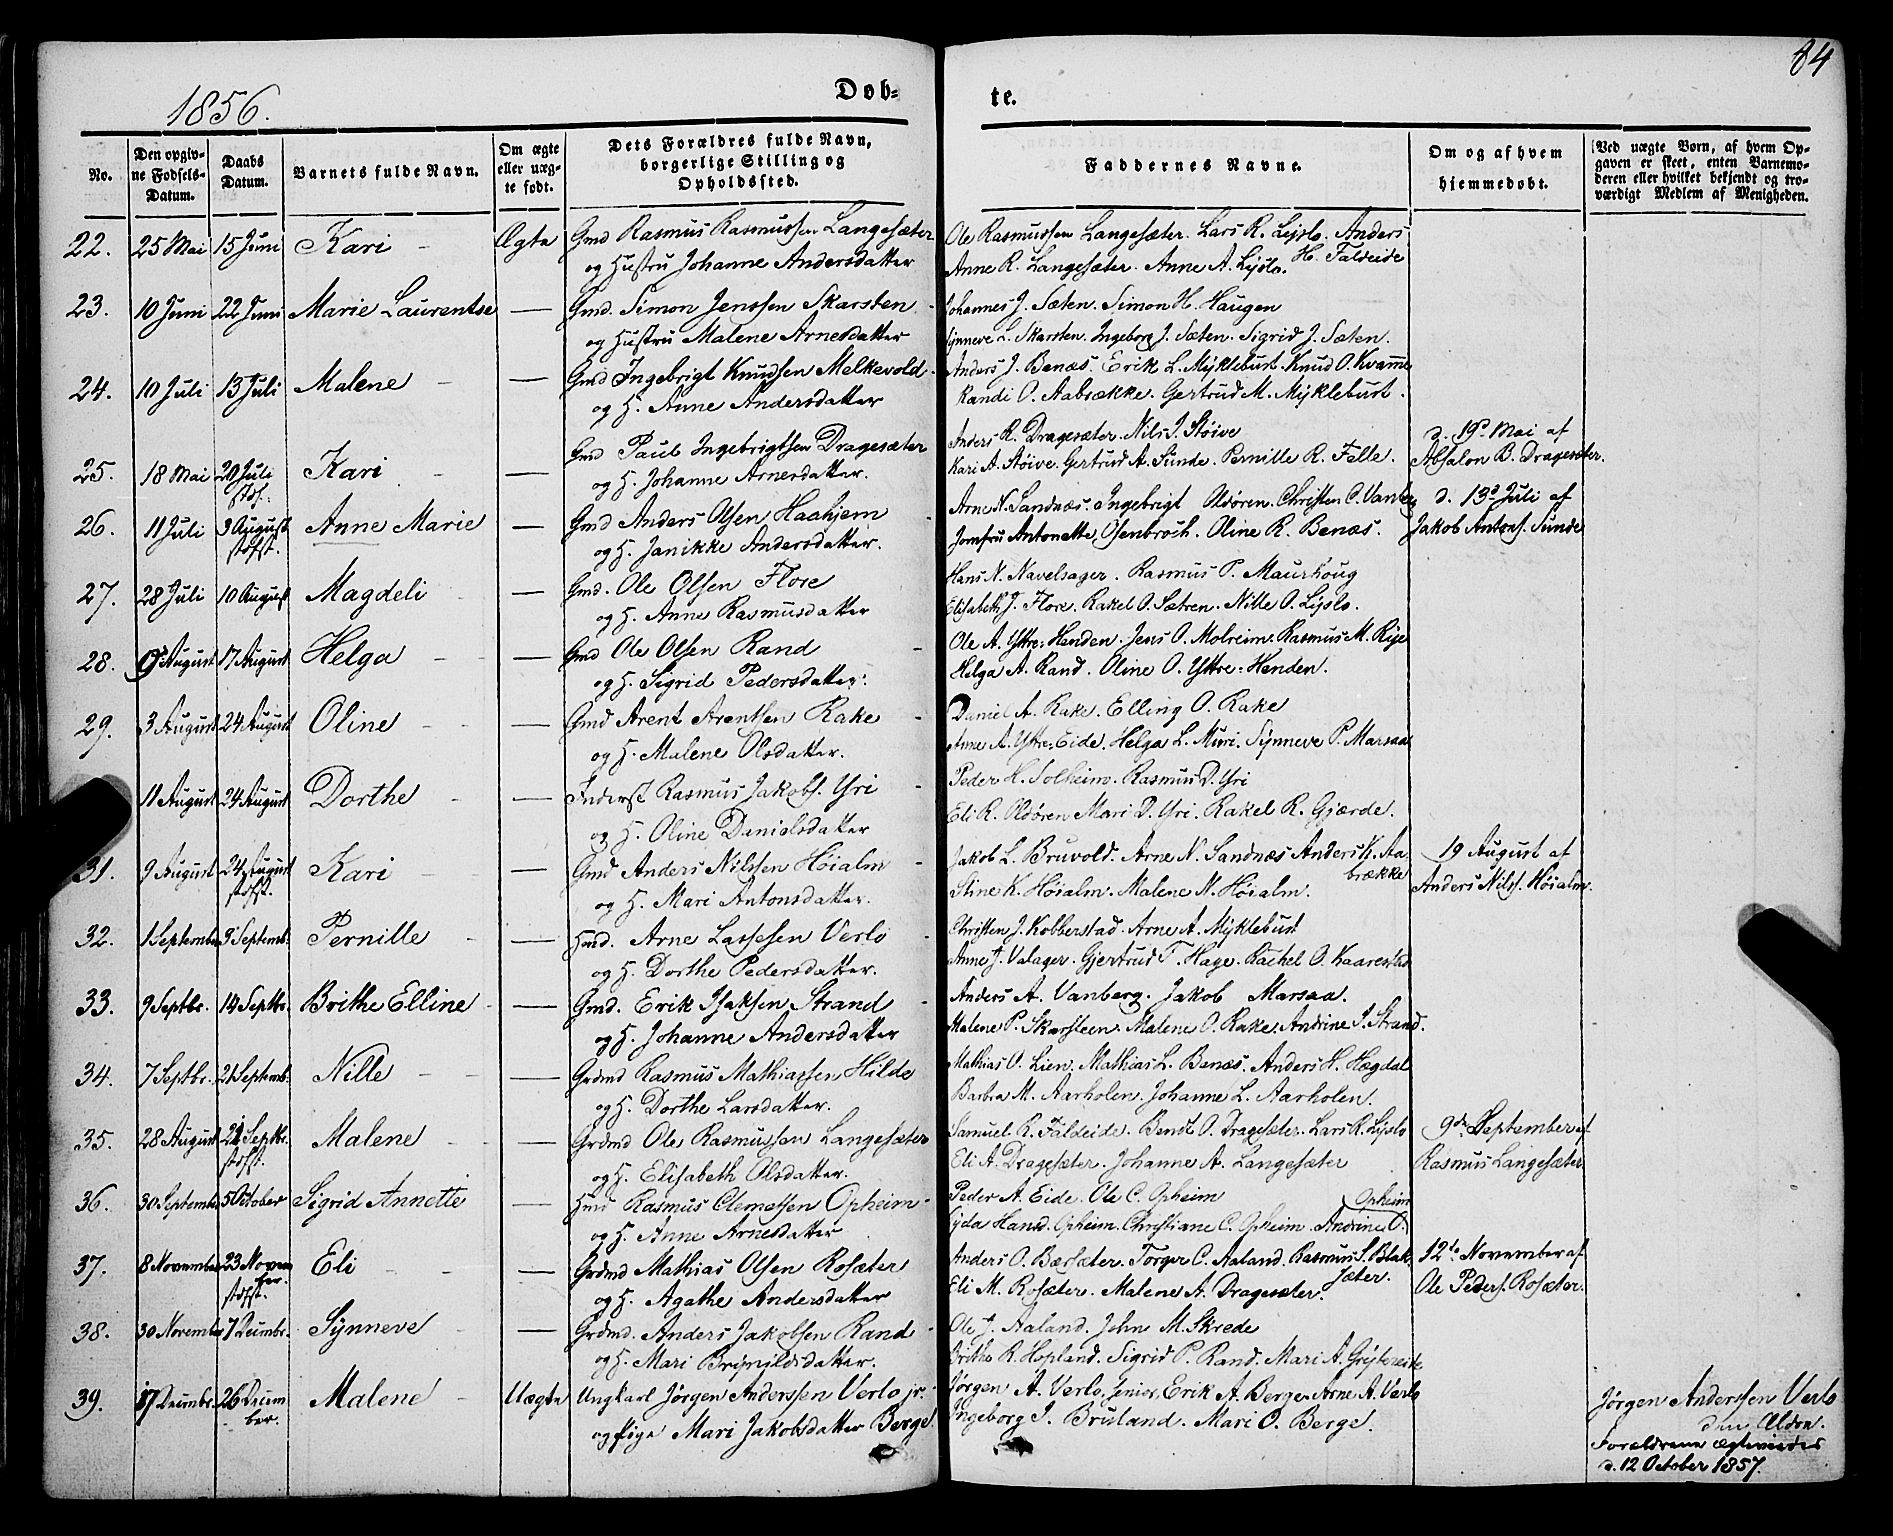 84
1856.
Døb-
te.
No.
Den opgiv-
ne Fødsels-
Datum.
Daabs
Datum.
Barnets fulde Navn.
Om ægte
eller uæg-
te født.
Dets Forældres fulde Navn,
borgerlige Stilling og
Opholdssted.
Faddernes Navne.
Om og af hvem
hjemmedøbt.
Ved uægte Børn, af hvem Op-
gaven er skeet, enten Barnemo-
deren eller hvilket bekjendt og tro-
værdigt Medlem af Menigheden.
22. 25 Mai 15 Juni Kari - Ægte Gmd Rasmus Rasmussen Langesæter Ole Rasmussen Langesæter. Lars R. Lijslo. Anders
og Hustru Johanne Andersdatter Anne R. Langesæter. Anne A. Lijslo. H. Faldeide
23. 10 Juni 22 Juni Marie Laurentse — Gmd. Simon Jenssen Skarsten - Johannes J. Sæten. Simon H. Haugen
og Hustru Malene Arnesdatter Synneve L. Skarsten. Ingeborg J. Sæten. Sigrid J. Sæten.
24. 10 Juli 13 Juli Malene - — Gmd Ingebrigt Knudsen Melkevold - Anders J. Benæs. Erik L. Mÿklebust. Knud O. Kvamme
og H. Anne Andersdatter Randi O. Aabrække. Gertrud M. Mÿklebust.
25. 18 Mai 20 Juli Kari - — Gmd Paul Ingebrigtsen Dragesæter Anders R. Dragesæter. Nils J. Støive d. 19de Mai af
stdf. og H. Johanne Arnesdatter. Kari A. Støive. Gertrud A. Sunde. Pernille R. Felle. Absalon B. Dragesæter.
26. 11 Juli 3 August Anne Marie — Gmd Anders Olsen Haahjem - Arne N. Sandnæs. Ingebrigt Oldøren. Christen C. Vanberg d. 13de Juli af
stdfst. og H. Janikke Andersdatter. Jomfru Antonette Osenbroch. Oline R. Benæs. Jakob Antons. Sunde
27. 28 Juli 10 August Magdeli - — Gmd. Ole Olsen Flore Hans N. Navelsager. Rasmus P. Maurhoug
og H. Anne Rasmusdatter Elisabeth J. Flore. Rakel O. Sætren. Nille O. Lijslo.
28. 9 August 17 August Helga - — Gmd Ole Olsen Rand - Ole A. Yttre-Henden. Jens O. Molreim. Rasmus M. Rije
og H. Sigrid Pedersdatter. Helga A. Rand. Oline O. Yttre-Henden.
29. 3 August 24 August Oline - — Gmd Arent Arentsen Rake - Daniel A. Rake. Elling O. Rake
og H. Malene Olsdatter. Anne A. Yttre-Eide. Helga L. Muri. Sÿnneve P. Marsaa
11 August 24 August Dorthe - — Inderst Rasmus Jakobs. Yri - Peder H. Solheim. Rasmus D. Yri
og H. Oline Danielsdatter Eli R. Oldøren Mari D. Yri. Rakel R. Gjærde.
31. 9 August 24 August Kari - — Gmd Anders Nilssen Høialm - Jakob L. Bruvold. Arne N. Sandnæs Anders K. Aa- 19 August af
stdfst. og H. Mari Antonsdatter. Stine K. Høialm. Malene N. Høialm. brække Anders Nilss. Høialm.
32. 1 September 9 Septemb. Pernille - — Hmd. Arne Lassesen Verlo - Christen J. Kobberstad. Arne A. Mÿklebust
og H. Dorthe Pedersdatter. Anne J. Valager. Gjertrud T. Hage. Rachel O. Kaarestad
33. 9 Septbr. 14 Septbr. Brithe Elline - — Gmd. Erik Isaksen Strand - Anders A. Vanberg. Jakob Marsaa.
og H. Johanne Andersdatter Malene P. Skarsteen. Malene O. Rake. Andrine J. Strand.
34. 7 Septbr. 21 Septemb. Nille - — Grdmd Rasmus Mathiassen Hilde Mathias O. Lien. Mathias L. Benæs. Anders H. Hægdal
og H. Dorthe Larsdatter. Barbra M. Aarholen. Johanne L. Aarholen.
35. 28 August 21 Septbr. Malene - — Grdmd Ole Rasmussen Langesæter Samuel R. Faldeide. Bendt O. Dragesæter. Lars R. Lijslo 9de September af
stdfst. og H. Elisabeth Olsdatter. Eli A. Dragesæter. Johanne A. Langesæter Rasmus Langesæter.
36. 30 September 5 October Sigrid Annette — Hmd Rasmus Clemetsen Opheim - Peder A. Eide. Ole C. Opheim Opheim
og H. Anne Arnesdatter Hansd. Opheim. Christiane C. Opheim. Andrine O.
37. 8 November 23 Novem Eli - — Grdmd Mathias Olsen Rosæter Anders O. Børsæter. Torger C. Aaland. Rasmus S. Blak- 12te November af
ber. stdfst. og H. Agathe Andersdatter Eli M. Rosæter. Malene A. Dragesæter. sæter. Ole Peders. Rosæter.
38. 30 November 7 Decmbr. Sÿnneve - — Grdmd. Anders Jakobsen Rand - Ole J. Aaland. John M. Skrede
og H. Mari Brynildsdatter. Brithe R. Hopland. Sigrid P. Rand. Mari A. Grÿteneide
39. 17 Decmbr. 26 Decem Malene - Uægte Ungkarl Jørgen Anderssen Verlo jr. Jørgen A. Verlo, Junior, Erik A. Berge. Arne A. Verlo Jørgen Anderssen Verlo
ber. og Pige Mari Jakobsdatter Berge. Ingeborg J. Bruland. Mari O. Berge. den Ældre.
Forældrene ægteviedes
d. 12 October 1857.